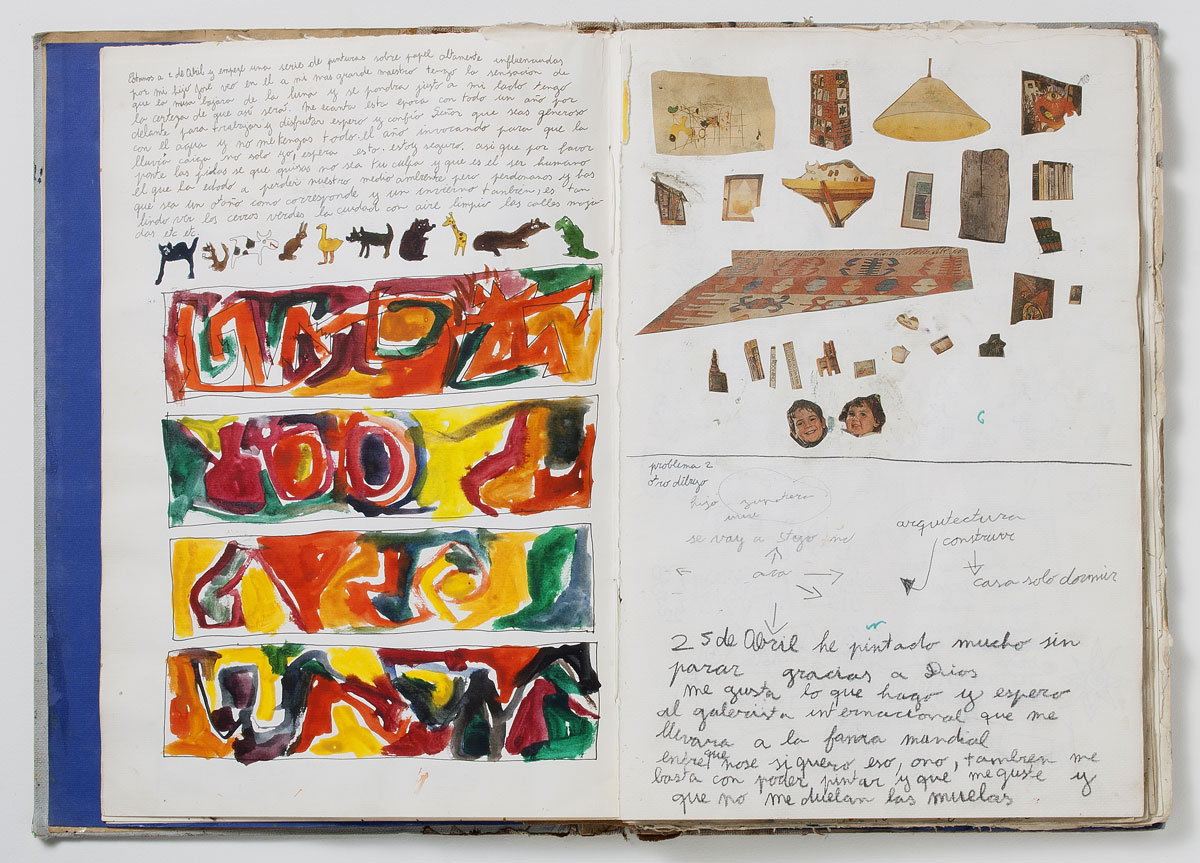 Estamos a 2 de Abril y empezé una serie de pinturas sobre papel altamente influenciadas
por mi hijo José veo en el a mi mas grande maestro tengo la sensacion de
que la musa bajara de la luna y se pondra justo a mi lado tengo
la certeza de que asi será. Me ecanta esta epoca con todo un año por
delante para trabajar y disfrutar espero y confio Señor que seas generoso
con el agua y no me tengas todo el año invocando para que la
lluvia caiga, no solo yo, espera esto. estoy seguro, asi que por favor
ponte las pidas se que quisas no sea tu culpa y que es el ser humano
el que la echado a perder nuestro medio ambiente pero perdonanos y has
que sea un otoño como corresponde y un invierno tambien, es tan
lindo ver los cerros verdes la cuidad con aire limpio las calles moja
das etc etc.
problema 2
otro dibujo
hijo
se vay a Stego
aca
arquitectura
construir
casa solo dormir
25 de Abril he pintado mucho sin
parar gracias a Dios
me gusta lo que hago y espero
al galerista internacional que me
llevara a la fama mundial
enfre que nose si quero, eso, ono, tambien me
basta con poder pintar y que me guste y
que no me duelan las muelas